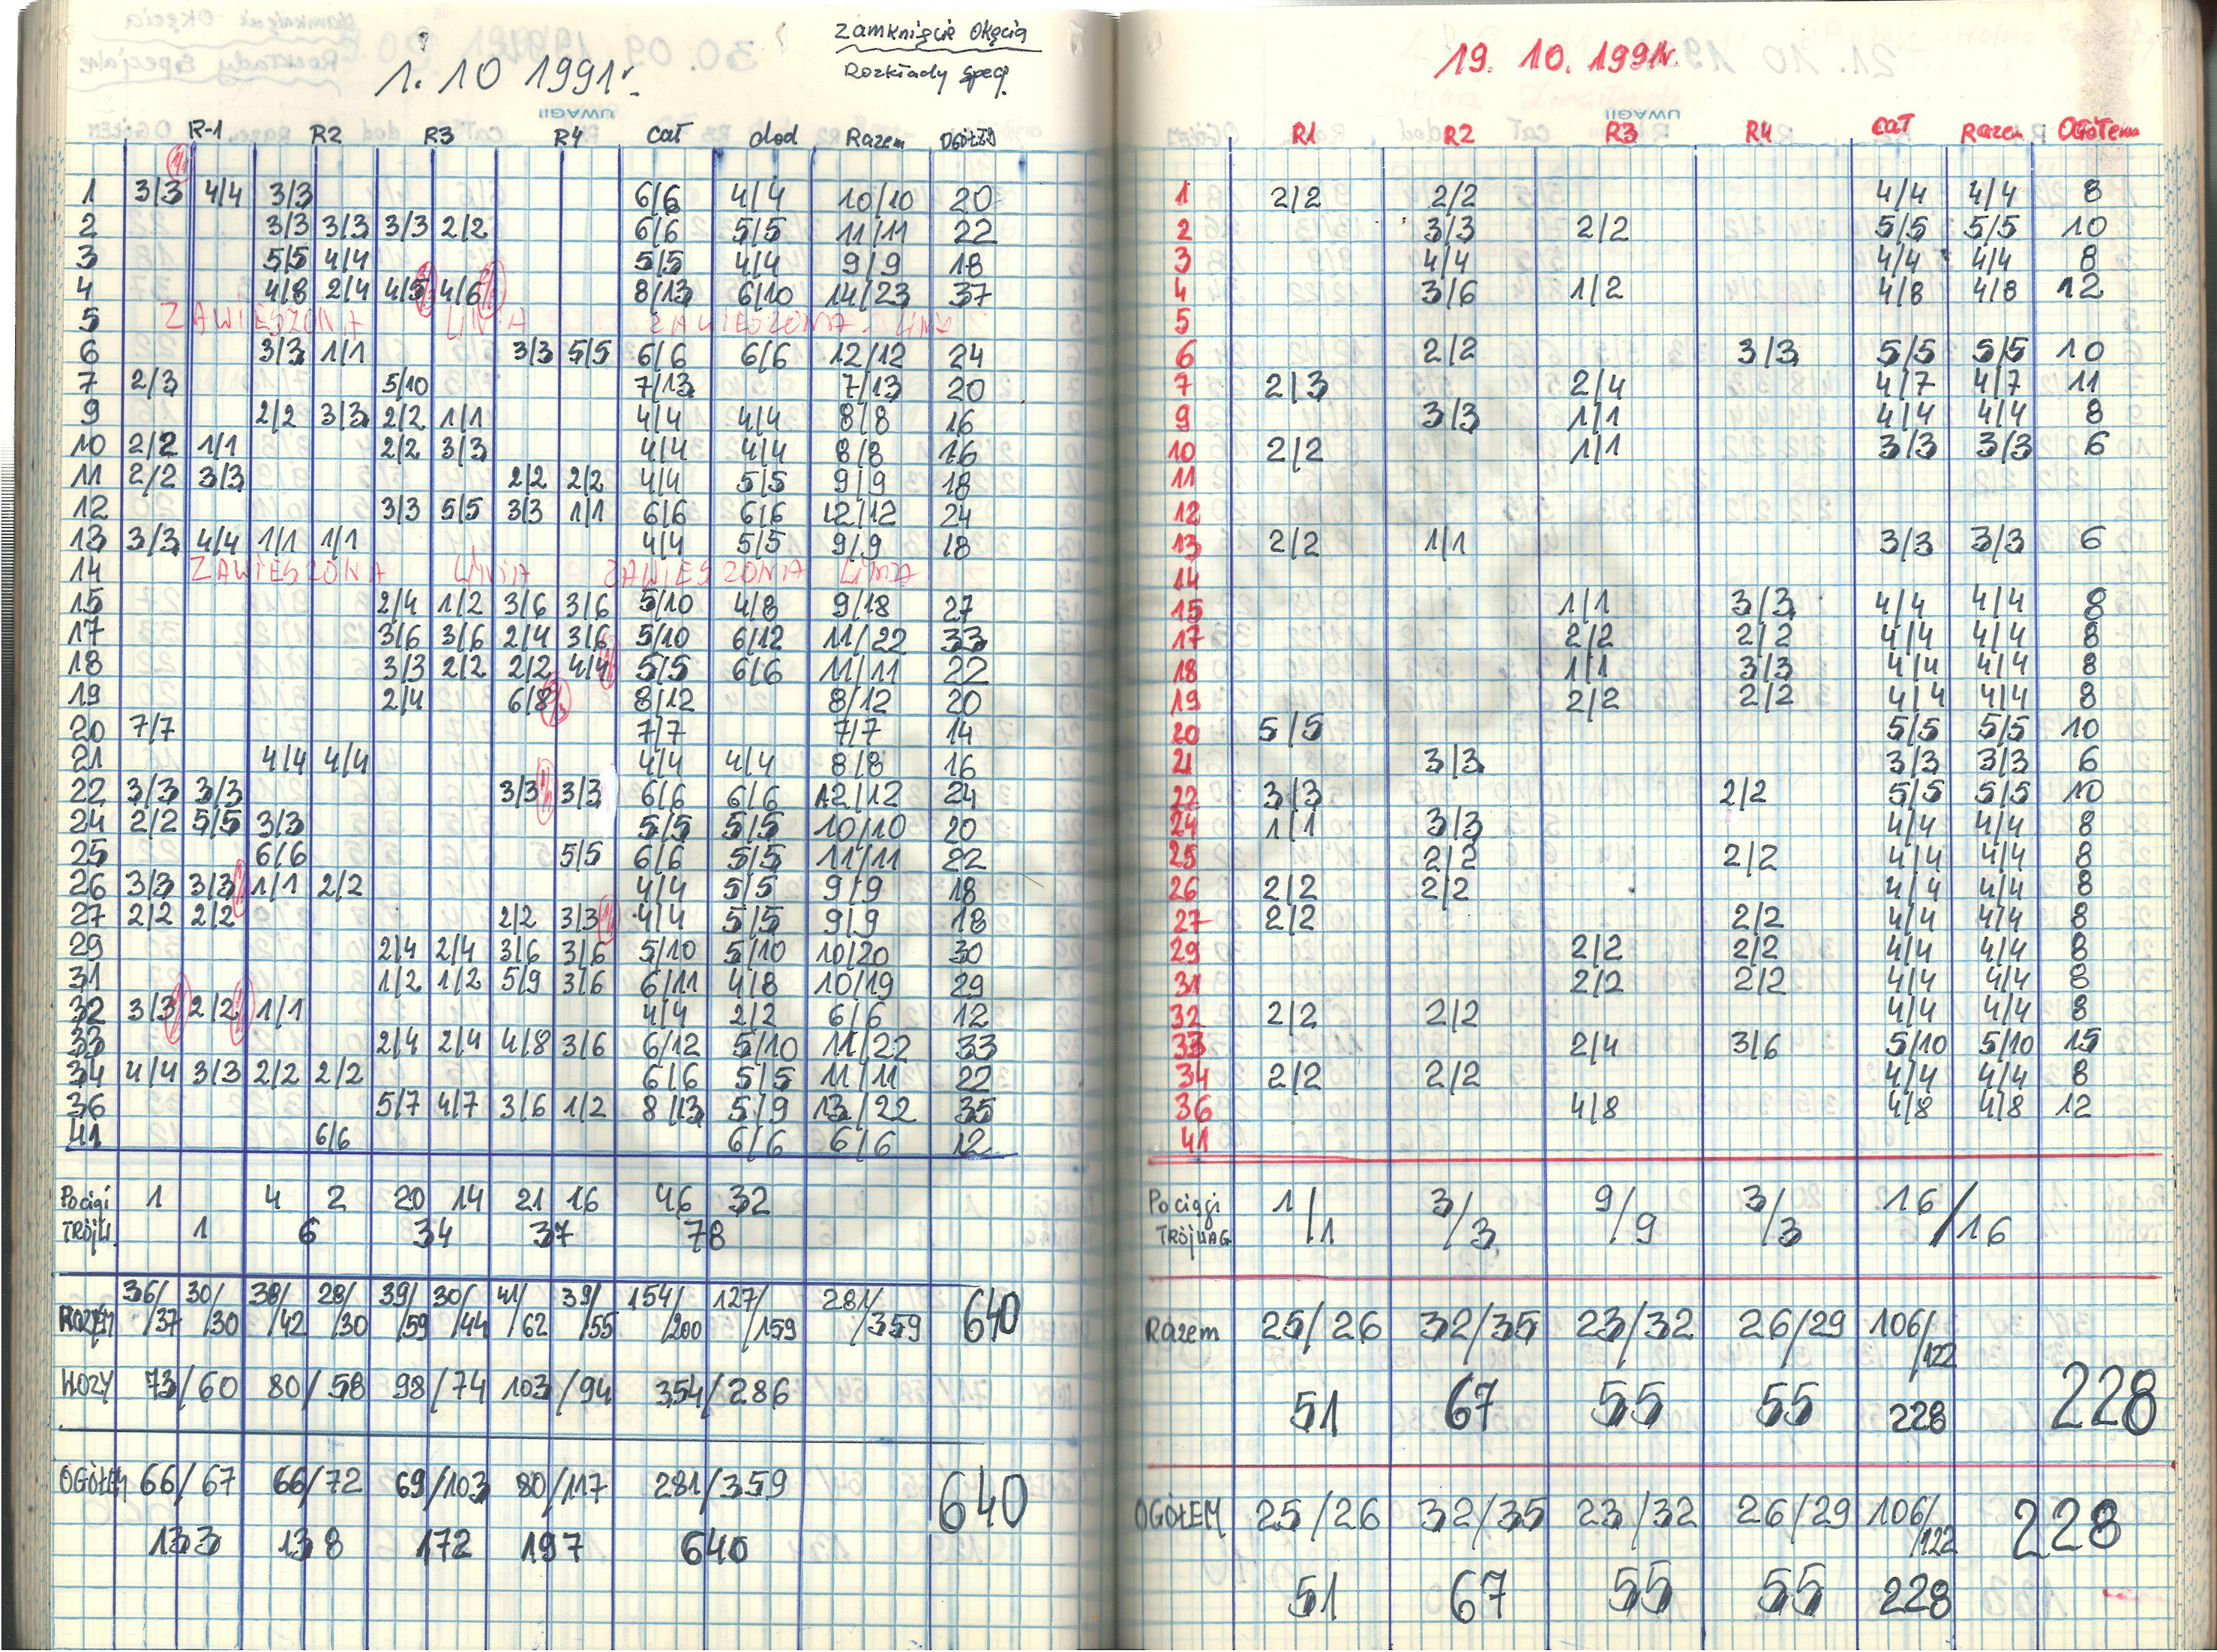 Zamknięcie Okęcia
1. 10 1991r.
Rozkłady specj.
UWAGI
R-1 R2 R3 R4 cał dod Razem OGÓŁEM
1 3/3 4/4 3/3 6/6 4/4 10/10 20
2 3/3 3/3 3/3 2/2 6/6 5/5 11/11 22
3 5/5 4/4 5/5 4/4 9/9 18
4 4/8 2/4 4/5 4/6 8/13 6/10 14/23 37
5 ZAWIESZONA LINIA ZAWIESZONA LINIA
6 3/3 1/1 3/3 5/5 6/6 6/6 12/12 24
7 2/3 5/10 7/13 7/13 20
9 2/2 3/3 2/2 1/1 4/4 4/4 8/8 16
10 2/2 1/1 2/2 3/3 4/4 4/4 8/8 16
11 2/2 3/3 2/2 2/2 4/4 5/5 9/9 18
12 3/3 5/5 3/3 1/1 6/6 6/6 12/12 24
13 3/3 4/4 1/1 1/1 4/4 5/5 9/9 18
14 ZAWIESZONA LINIA ZAWIESZONA LINIA
15 2/4 1/2 3/6 3/6 5/10 4/8 9/18 27
17 3/6 3/6 2/4 3/6 5/10 6/12 11/22 33
18 3/3 2/2 2/2 4/4 5/5 6/6 11/11 22
19 2/4 6/8 8/12 8/12 20
20 7/7 7/7 7/7 14
21 4/4 4/4 4/4 4/4 8/8 16
22 3/3 3/3 3/3 3/3 6/6 6/6 12/12 24
24 2/2 5/5 3/3 5/5 5/5 10/10 20
25 6/6 5/5 6/6 5/5 11/11 22
26 3/3 3/3 1/1 2/2 4/4 5/5 9/9 18
27 2/2 2/2 2/2 3/3 4/4 5/5 9/9 18
29 2/4 2/4 3/6 3/6 5/10 5/10 10/20 30
31 1/2 1/2 5/9 3/6 6/11 4/8 10/19 29
32 3/3 2/2 1/1 4/4 2/2 6/6 12
33 2/4 2/4 4/8 3/6 6/12 5/10 11/22 33
34 4/4 3/3 2/2 2/2 6/6 5/5 11/11 22
36 5/7 4/7 3/6 1/2 8/13 5/9 13/22 35
41 6/6 6/6 6/6 12
Pociągi 1 4 2 20 14 21 16 46 32
TRÓJK. 1 6 34 37 78
36/ 30/ 38/ 28/ 39/ 30/ 41/ 39/ 154/ 127/ 281/ 640
RAZEM /37 /30 /42 /30 /59 /44 /62 /55 /200 /159 /359
WOZY 73/60 80/58 98/74 103/94 354/286
OGÓŁEM 66/67 66/72 69/103 80/117 281/359 640
133 138 172 197 640
19. 10. 1991r.
UWAGI
R1 R2 R3 R4 cał Razem OGÓŁem
1 2/2 2/2 4/4 4/4 8
2 3/3 2/2 5/5 5/5 10
3 4/4 4/4 4/4 8
4 3/6 1/2 4/8 4/8 12
5
6 2/2 3/3 5/5 5/5 10
7 2/3 2/4 4/7 4/7 11
9 3/3 1/1 4/4 4/4 8
10 2/2 1/1 3/3 3/3 6
11
12
13 2/2 1/1 3/3 3/3 6
14
15 1/1 3/3 4/4 4/4 8
17 2/2 2/2 4/4 4/4 8
18 1/1 3/3 4/4 4/4 8
19 2/2 2/2 4/4 4/4 8
20 5/5 5/5 5/5 10
21 3/3 3/3 3/3 6
22 3/3 2/2 5/5 5/5 10
24 1/1 3/3 4/4 4/4 8
25 2/2 2/2 4/4 4/4 8
26 2/2 2/2 4/4 4/4 8
27 2/2 2/2 4/4 4/4 8
29 2/2 2/2 4/4 4/4 8
31 2/2 2/2 4/4 4/4 8
32 2/2 2/2 4/4 4/4 8
33 2/4 3/6 5/10 5/10 15
34 2/2 2/2 4/4 4/4 8
36 4/8 4/8 4/8 12
41
Pociągi 1/ 3/ 9/ 3/ 16/
TRÓJWAG /1 /3 /9 /3 /16
Razem 25/26 32/35 23/32 26/29 106/
/122
51 67 55 55 228 228
OGÓŁEM 25/26 32/35 23/32 26/29 106/ 228
/122
51 67 55 55 228